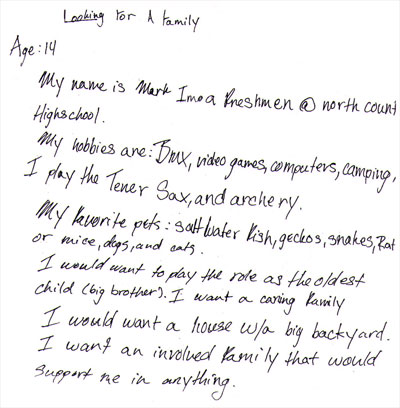 Looking For A Family
Age: 14
My name is Mark Im a Freshmen @ north count
Highschool.
My hobbies are: Bmx, video games, computers, camping,
I play the Tener Sax, and archery.
My Favorite pets: saltwater Fish, geckos, snakes, Rat
or mice, dogs, and cats.
I would want to play the role as the oldest
child (big brother). I want a caring Family
I would want a house w/a big backyard.
I want an involved Family that would
support me in anything.